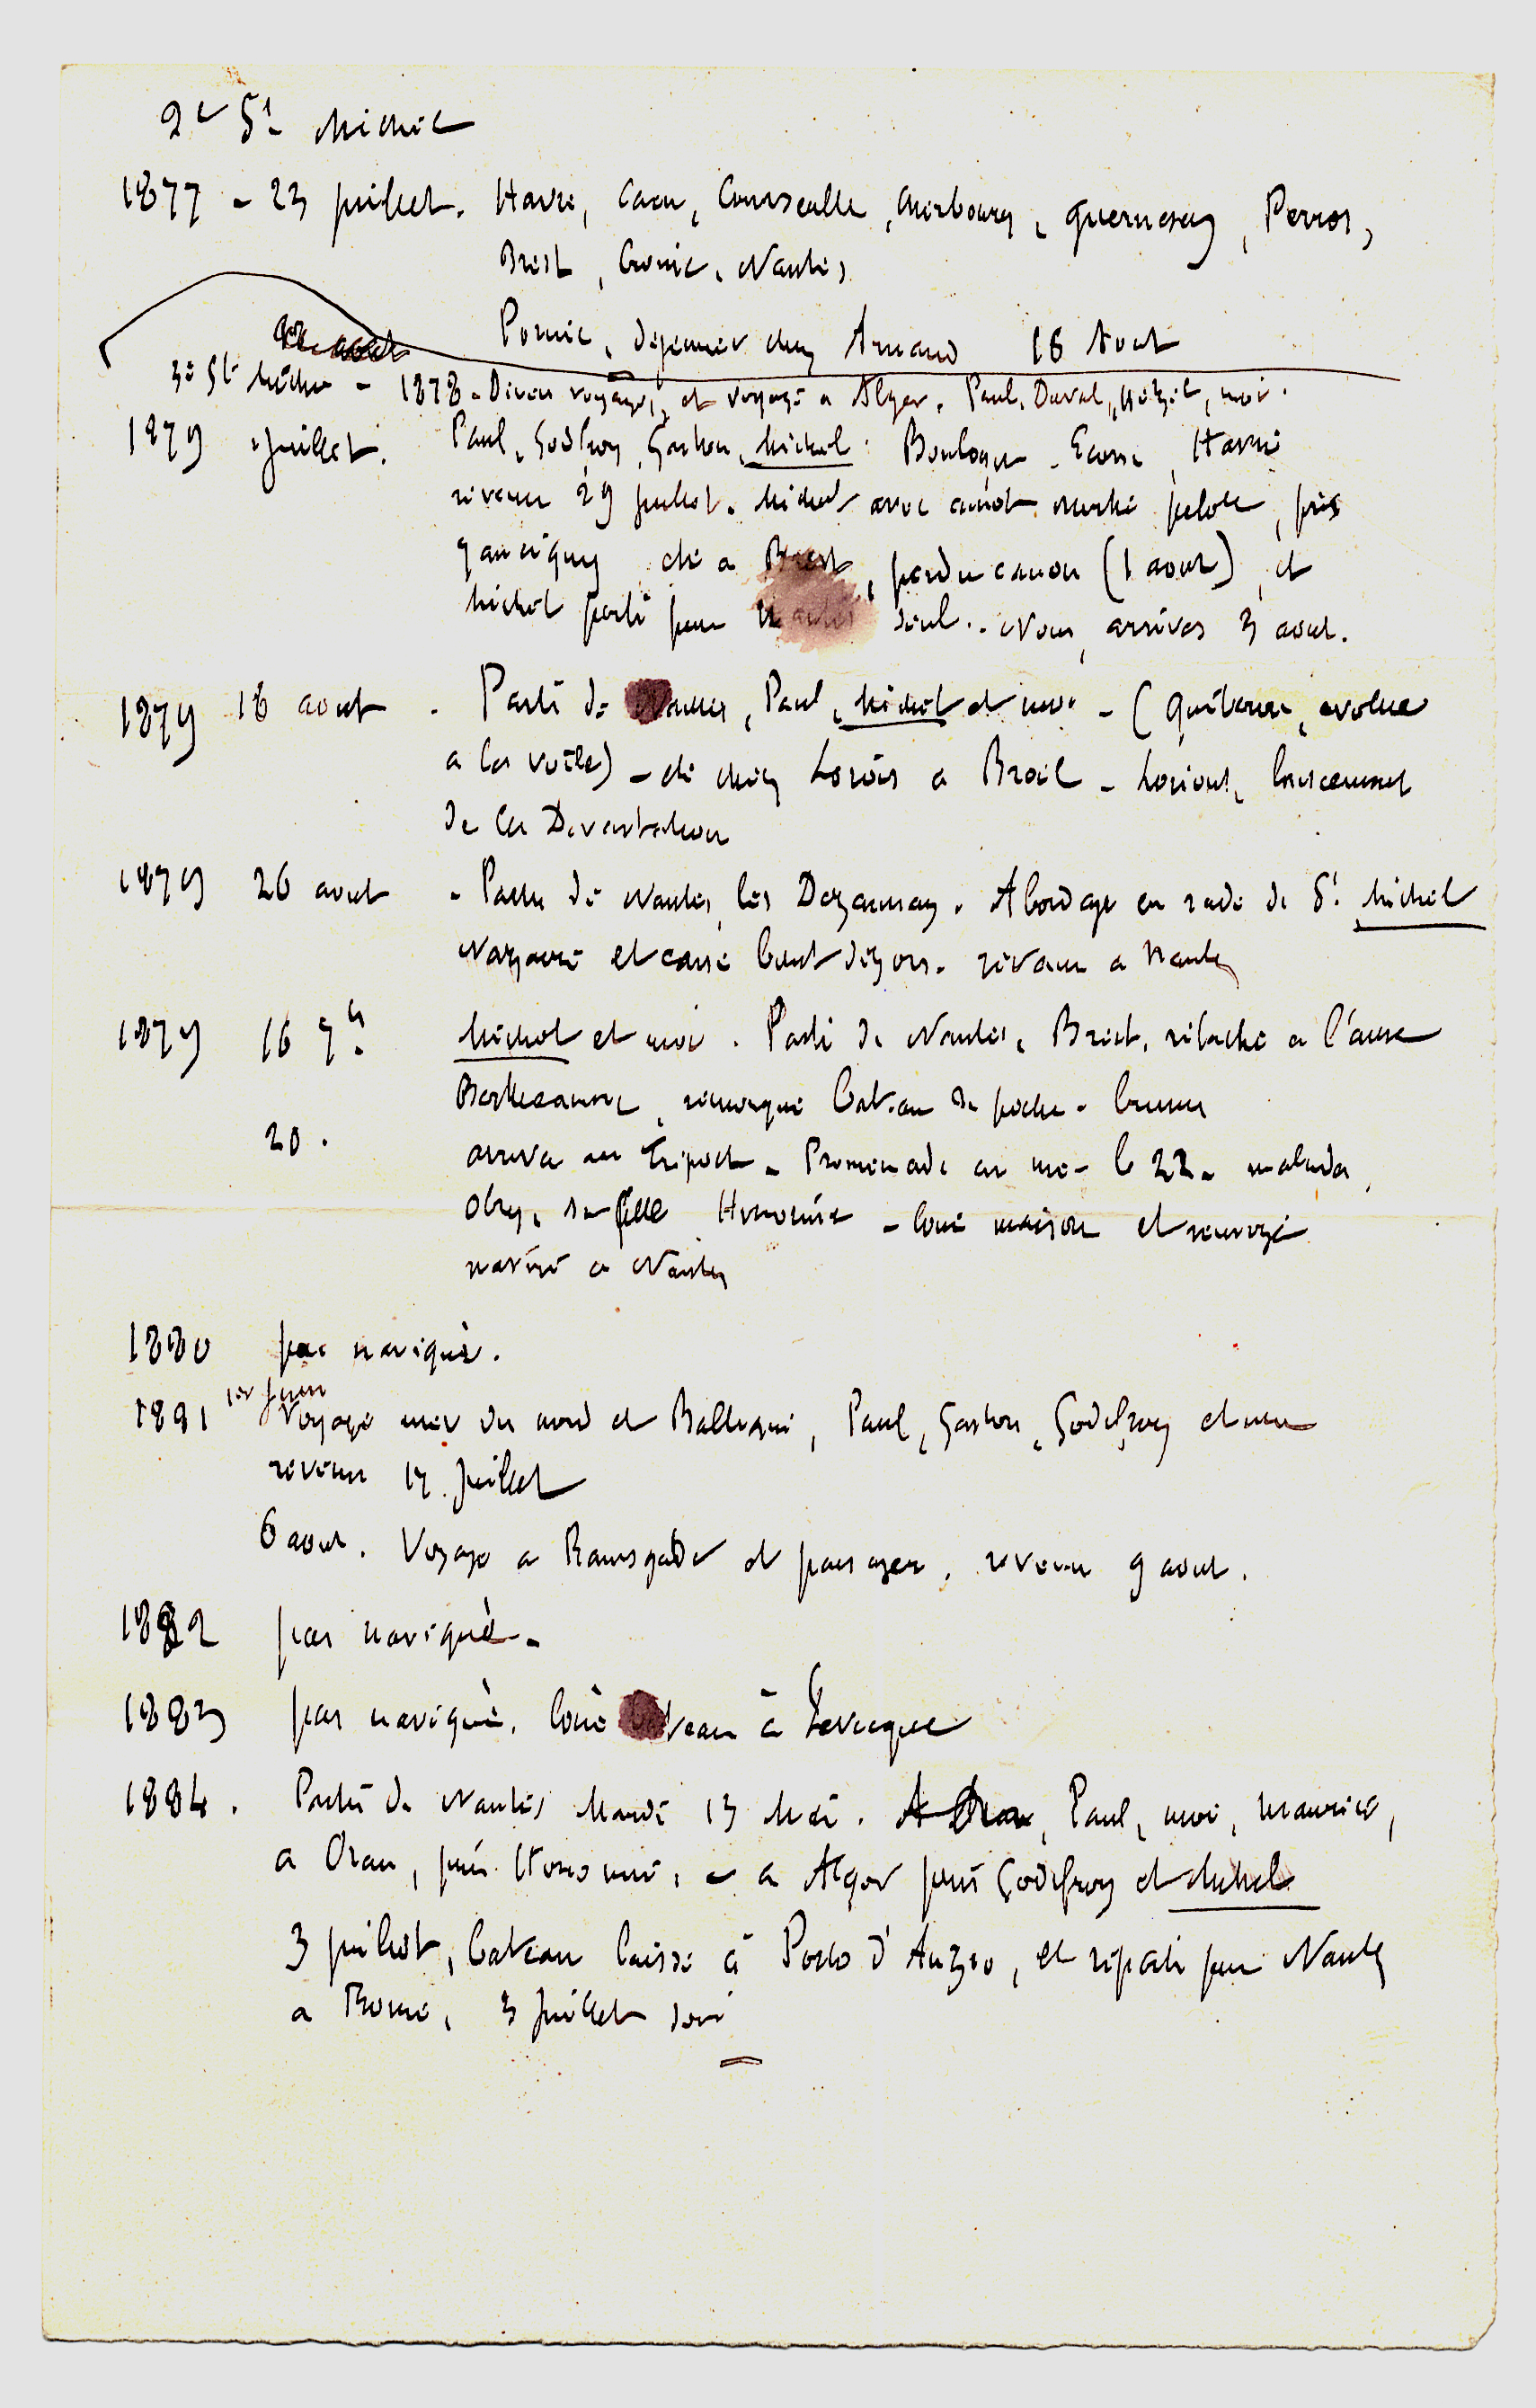 2e St Michel
1877 - 23 juillet. Havre, Caen, Courseulle, Cherbourg, Guernesey, Perros,
Brest, Nantes
Pornic, dejeuner chez Arnaud 18 Aout
3e St Michel - 1878. Divers voyages, et voyage a Alger. Paul, Duval, Hetzel, moi.
1879 juillet. Paul, Godfroy, Gaston, Michel : Boulogne - Ecosse, Havre
revenu 29 juillet. Michel avec canot pilote, pris
été a Brest, perdu canon (1 aout), et
Michel parti pour Nantes seul. Nous, arrives 3 aout.
1879 18 aout. Parti de Nantes, Paul, Michel et moi - (Quiberon, evolue
a la voile) - été chez Lorois a - Lorient, lancement
de la Devastation
1879 26 aout - Parti de Nantes, les Dezaunay. Abordage en rade de St. Michel
Nazaire et cassé bout dehors. revenu a Nantes
1879 16 7b. Michel et moi. Parti de Nantes, Brest, relaché a l'anse
Bertheaume, remorqué bateau de peche - brume
20. arrivé au Treport - Promenade en mer le 22 - malade,
Obry, sa fille Honorine - loué maison et renvoyé
navire a Nantes
1880 pas navigué.
1881 1er juin Voyage mer du nord et Baltique, Paul, Gaston, Godefroy et moi
revenu 17 juillet
6 aout. Voyage a Ramsgate et passages, revenu 9 aout.
1882 pas navigué -
1883 pas navigué. loué bateau à Levesque
1884. Partis de Nantes Mardi 13 Mai. A Oran, Paul, moi, Maurice,
a Oran, pris Honorine, - a Alger pris Godefroy et Michel
3 juillet, bateau laissé à Porto d'Anzio, et reparti pour Nantes
a Rome, 3 juillet soir